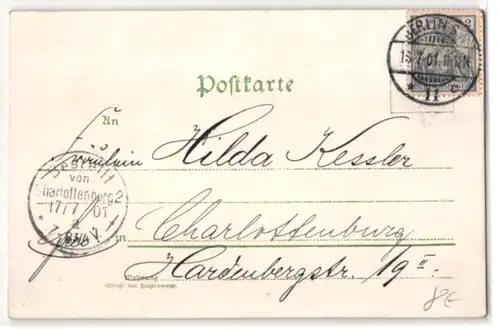 BERLIN S.
11
Postkarte
An
Fräulein Hilda Kessler
Bestellt
von
Charlottenburg 2
17/7 01
in Charlottenburg
Wohnung Hardenbergstr. 19 II.
(Straße und Hausnummer)
8E